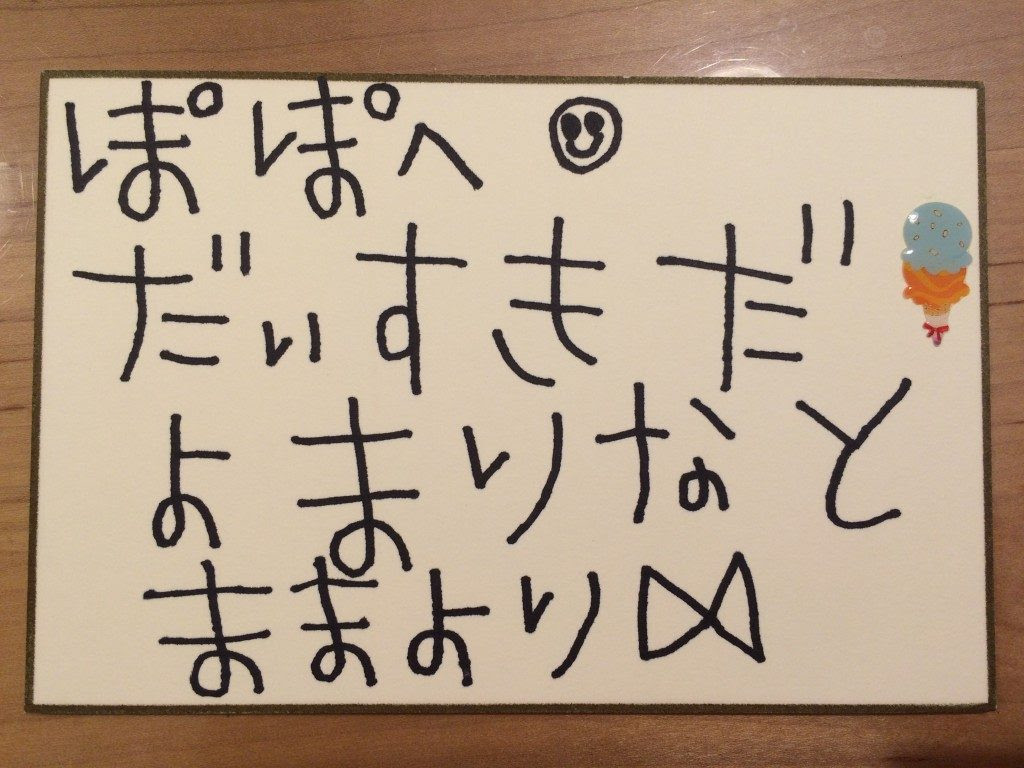 ぱぱへ
だいすきだ
よまりなと
ままより